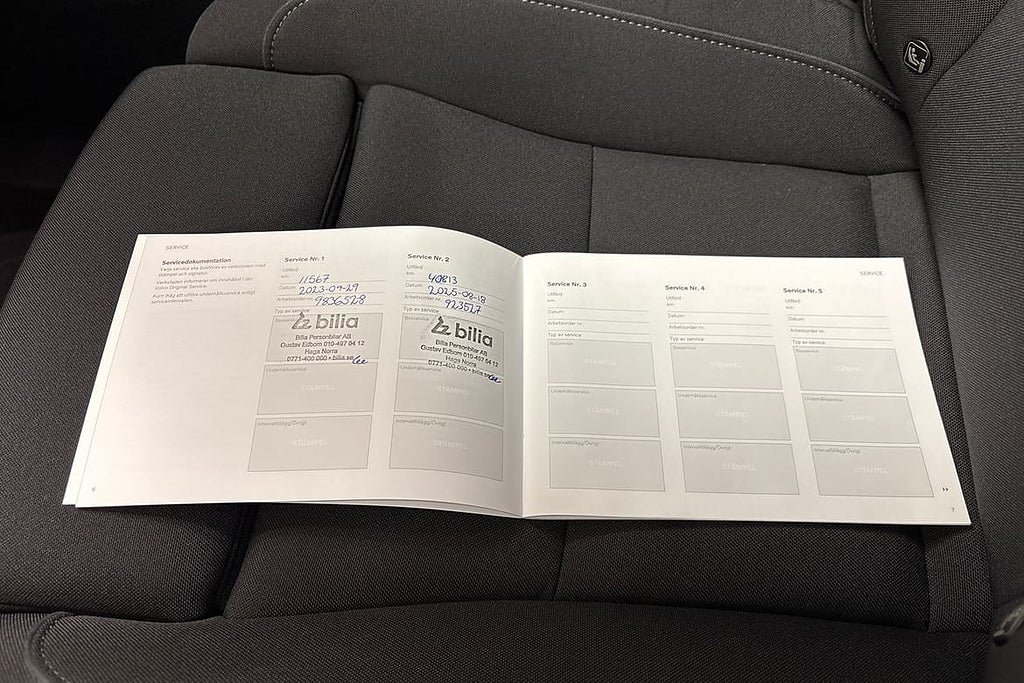 SERVICE
Servicedokumentation
Varje service ska bokföras av verkstaden med
stämpel och signatur.
Verkstaden informerar om innehållet i din
Volvo Original Service.
Kom ihåg att utföra underhållsservice enligt
serviceintervallen.
Service Nr. 1
Utförd
km 11567
Datum 2023-09-29
Arbetsorder nr. 9836528
Typ av service
bilia
Bilia Personbilar AB
Gustav Edbom 010-497 04 12
Haga Norra
0771-400 000 • bilia.se
Underhållsservice
STÄMPEL
Intervalltillägg/Övrigt
STÄMPEL
Service Nr. 2
Utförd
km 40813
Datum 2025-08-18
Arbetsorder nr. 923527
Typ av service
Basservice
bilia
Bilia Personbilar AB
Gustav Edbom 010-497 04 12
Haga Norra
0771-400 000 • bilia.se
Underhållsservice
STÄMPEL
Intervalltillägg/Övrigt
STÄMPEL
6
SERVICE
Service Nr. 3
Utförd
km
Datum
Arbetsorder nr.
Typ av service
Basservice
STÄMPEL
Underhållsservice
STÄMPEL
Intervalltillägg/Övrigt
STÄMPEL
Service Nr. 4
Utförd
km
Datum
Arbetsorder nr.
Typ av service
Basservice
STÄMPEL
Underhållsservice
STÄMPEL
Intervalltillägg/Övrigt
STÄMPEL
Service Nr. 5
Utförd
km
Datum
Arbetsorder nr.
Typ av service
Basservice
STÄMPEL
Underhållsservice
STÄMPEL
Intervalltillägg/Övrigt
STÄMPEL
7